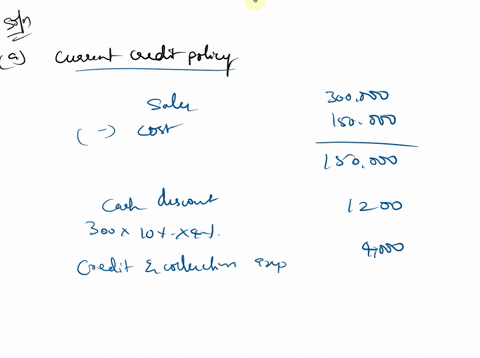 Soln
(a) Current credit policy
Sales 300.000
(-) Cost 150.000
150.000
Cash discount 1200
300 x 10% x 4%.
Credit & collection exp 4,000